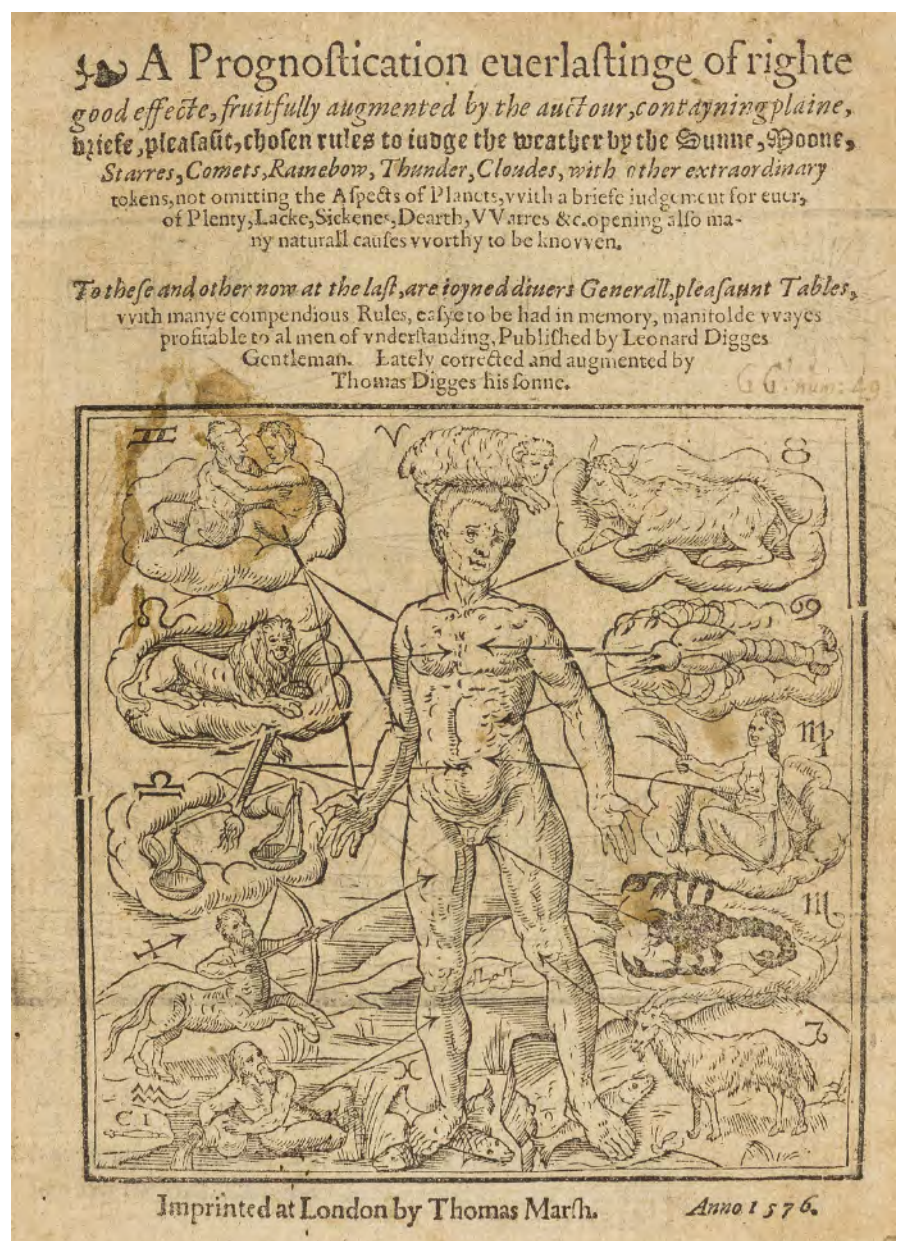 A Prognoſtication euerlaſtinge of righte
good effecte, fruitfully augmented by the auctour, contayning plaine,
briefe, pleaſaūt, choſen rules to iudge the weather by the Sunne, Moone,
Starres, Comets, Rainebow, Thunder, Cloudes, with other extraordinary
tokens, not omitting the Aſpects of Planets, vvith a briefe iudgement for euer,
of Plenty, Lacke, Sickenes, Dearth, VVarres &c. opening alſo ma-
ny naturall cauſes vvorthy to be knovven.
To theſe and other now at the laſt, are ioyned diuers Generall, pleaſaunt Tables,
vvith manye compendious Rules, eaſye to be had in memory, manifolde vvayes
profitable to al men of vnderſtanding, Publiſhed by Leonard Digges
Gentleman. Lately corrected and augmented by
Thomas Digges his ſonne.
G G. num: 49
♊ ♈ ♉
♌ ♋
♎ ♍
♐ ♏
♒ ♓ ♑
C I
Imprinted at London by Thomas Marſh. Anno 1576.